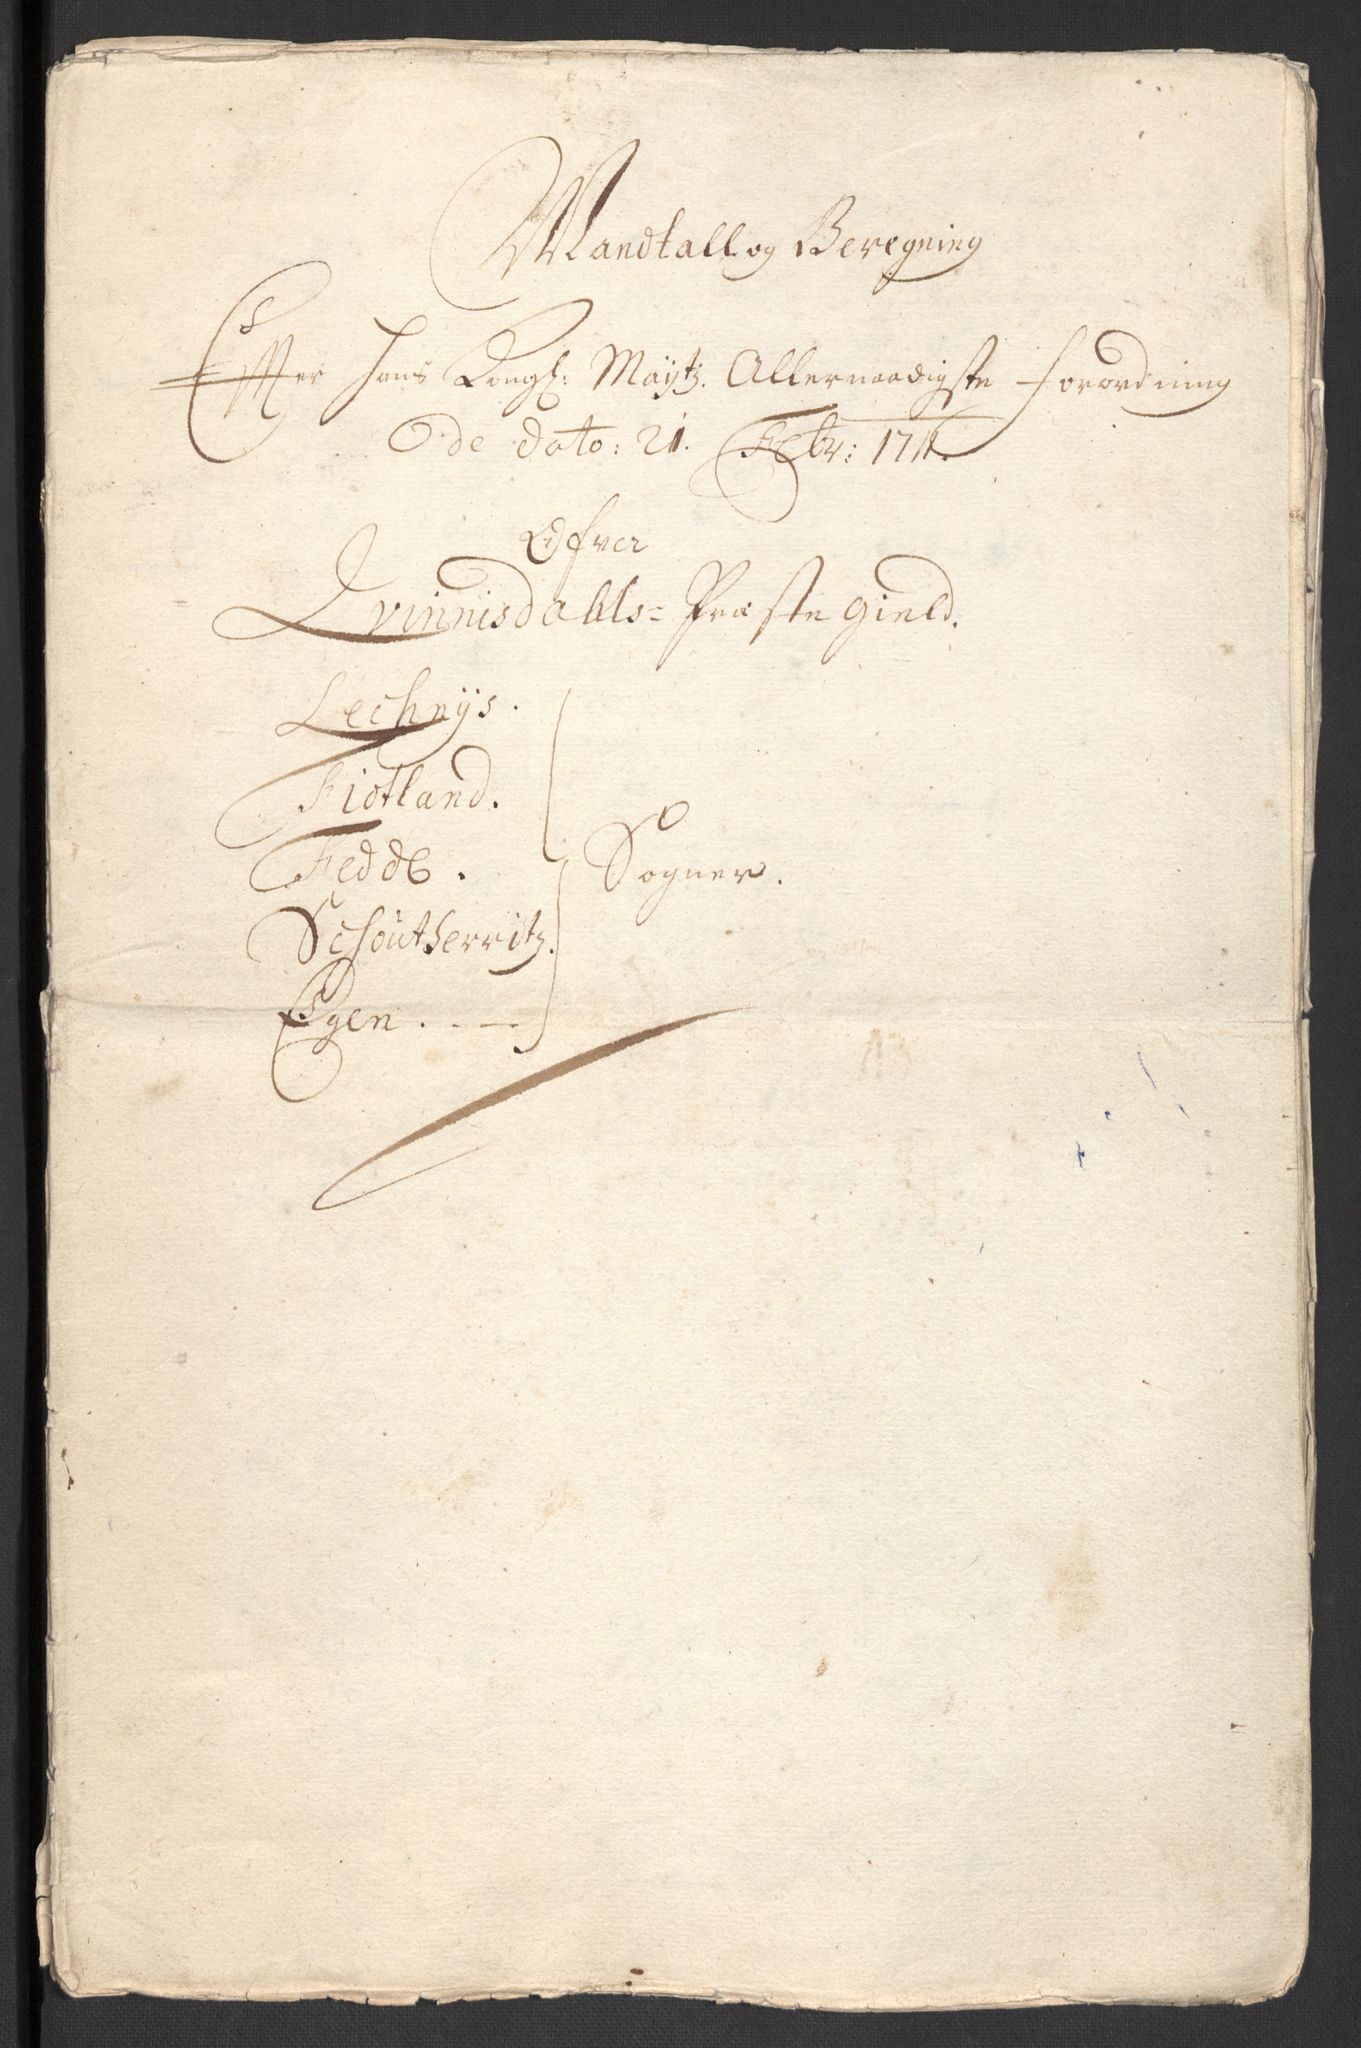 Mandtall og Beregning
Effter Hans Kongl: Maÿtz. Allernaadigste Forordning
de dato: 21. Febr: 1711.
Ofver
Qvinnisdahls= Præstegield.
Lechnÿs.
Fiotland.
Fedde.
Sogner.
Schoutherritz.
Egen. . - —